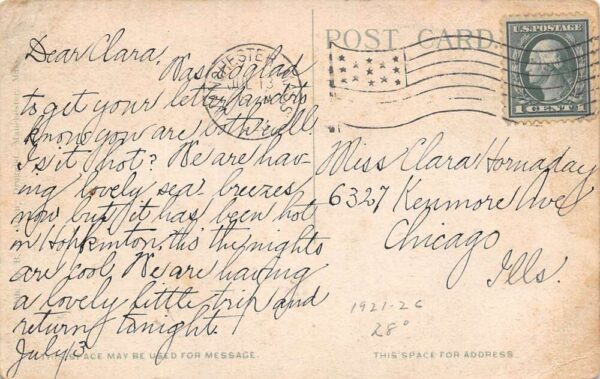 POST CARD.
Dear Clara,
Was so glad
to get your letter and to
know you are both well.
Is it hot? We are hav-
ing lovely sea-breezes
now but it has been hot
in Hopkinton, tho the nights
are cool. We are having
a lovely little trip and
return tonight.
July 13
CHESTER
JUL 13
MASS
U.S. POSTAGE
1 CENT 1
Miss Clara Hornaday
6327 Kenmore Ave
Chicago
Ills.
1921-26
28°
THIS SPACE MAY BE USED FOR MESSAGE.
THIS SPACE FOR ADDRESS.